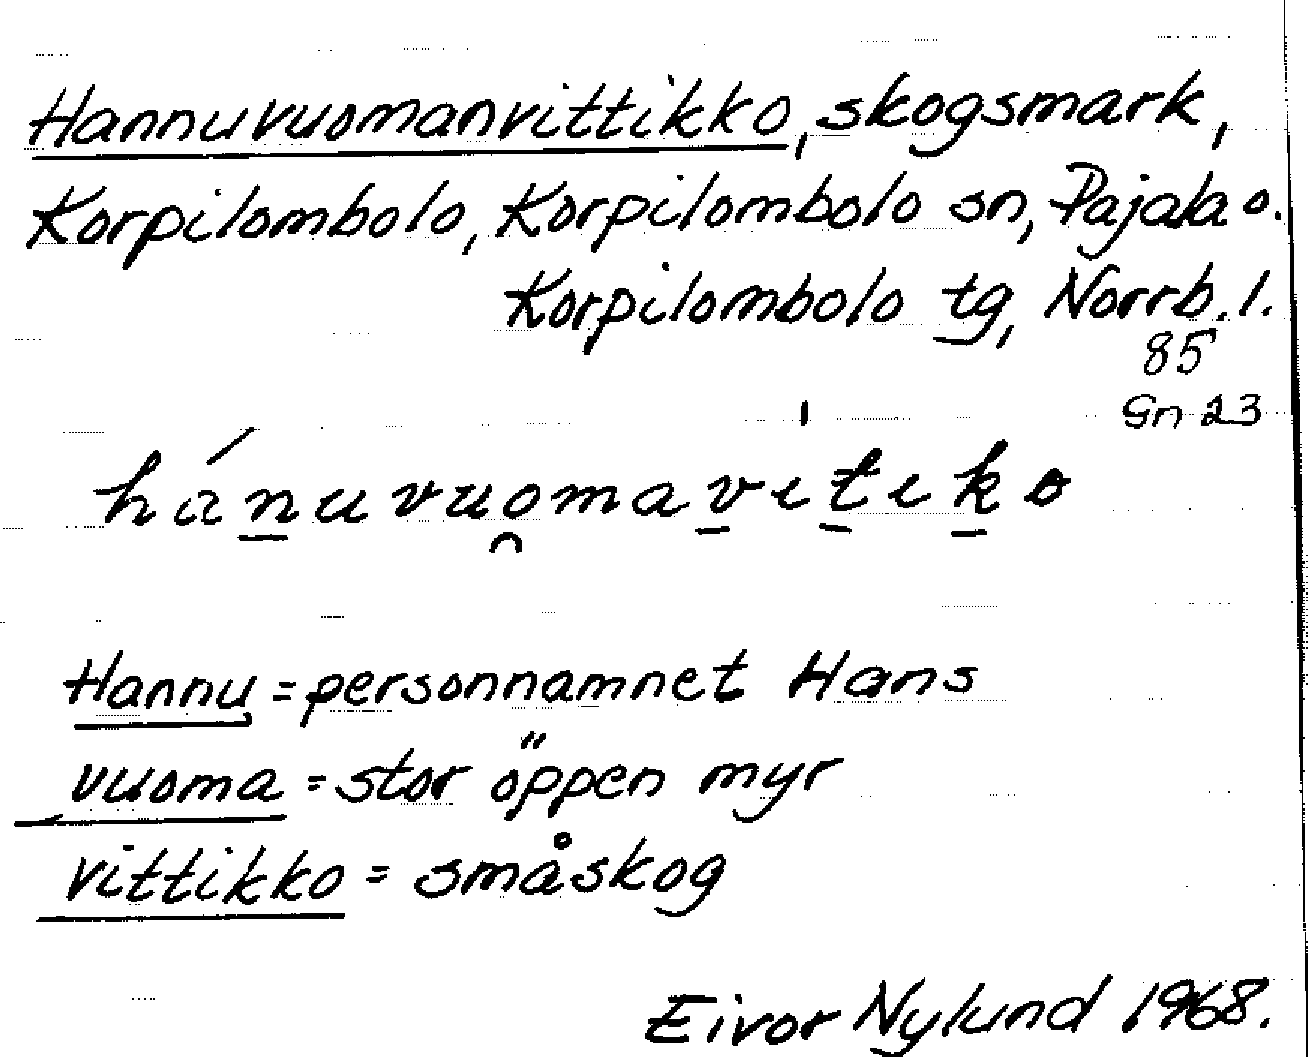 Hannuvuomanvittikko, skogsmark,
Korpilombolo, Korpilombolo sn, Pajala o.
Korpilombolo tg, Norrb. l.
85
Gn 23
hánu̯vuo̯mavitiko
Hannu = personnamnet Hans
vuoma = stor öppen myr
vittikko = småskog
Eivor Nylund 1968.